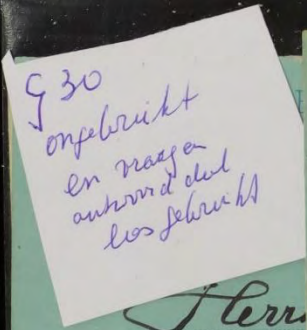 G 30
ongebruikt
en vraag en
antwoord deel
los gebruikt
Herr